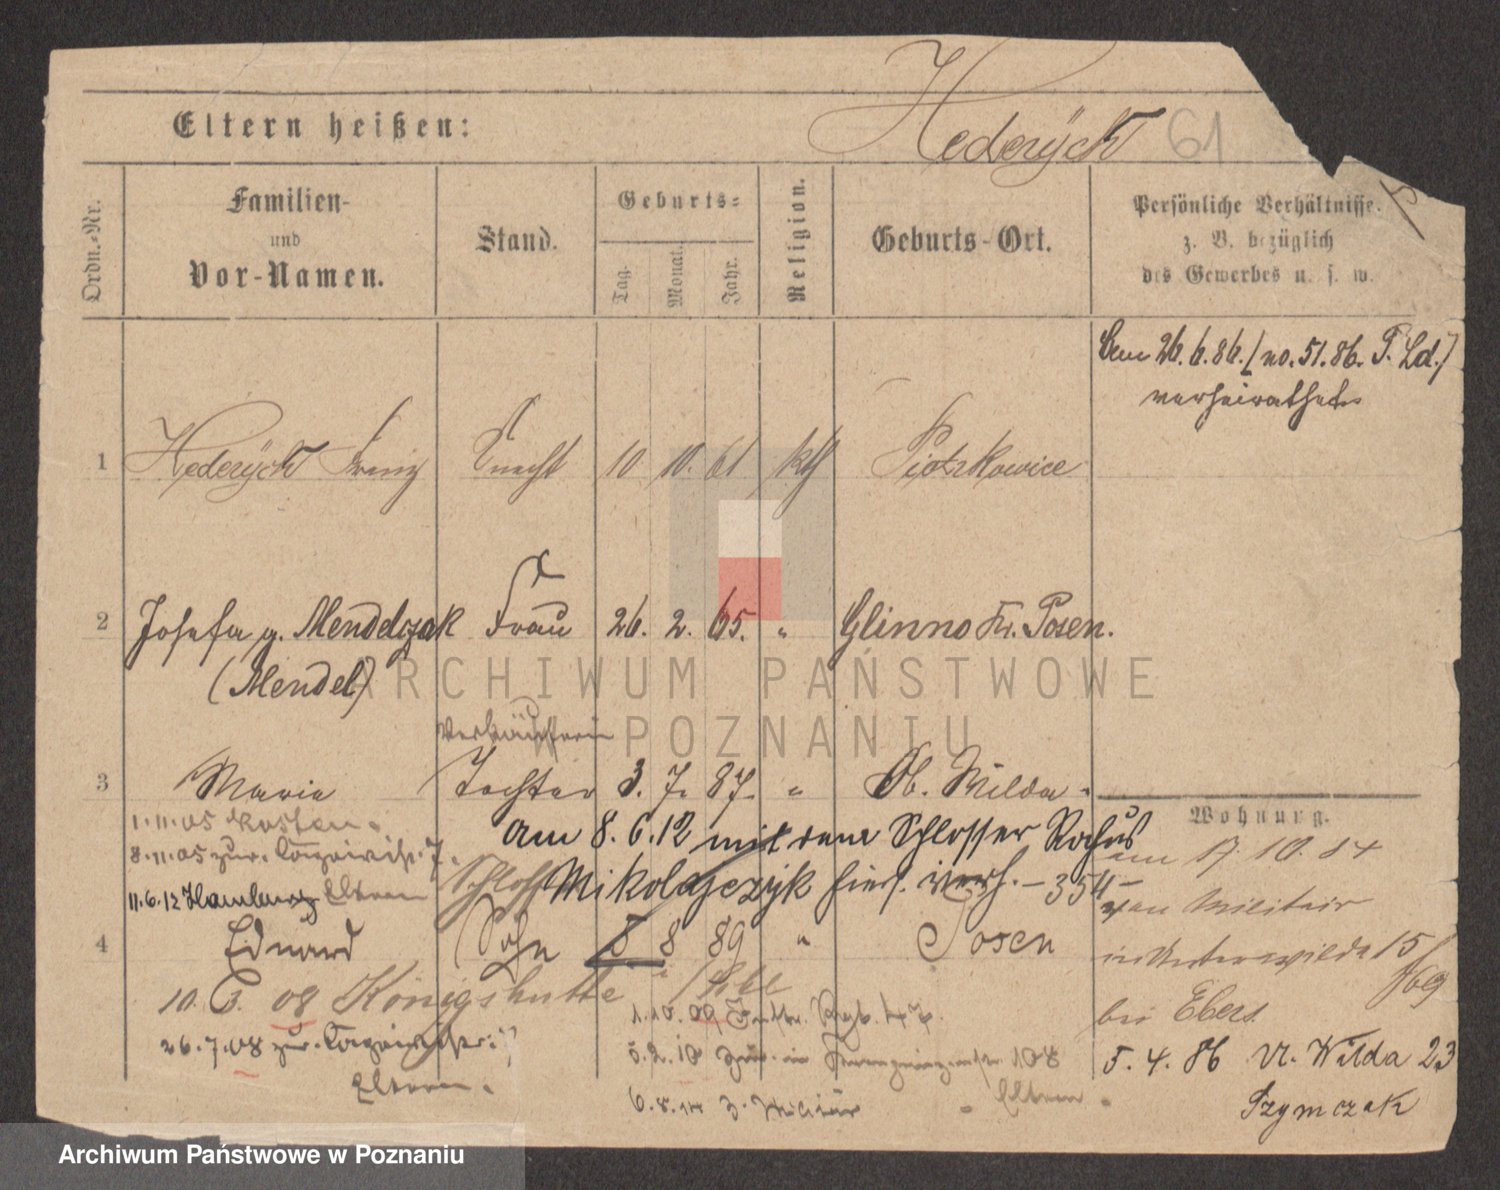 Hederÿck 61
Eltern heißen:
Ordn.-Nr.
Familien-
und
Vor-Namen.
Stand.
Geburts-
Tag.
Monat.
Jahr.
Religion.
Geburts-Ort.
Persönliche Verhältnisse.
z. B. bezüglich
des Gewerbes u. s. w.
Am 26.6.86. (no. 51.86. P. Ld.)
verheirathet
1 Hederÿck Franz Knecht 10 10. 61 kth Piotrkowice
2 Josefa g. Mendelczak Frau 26. 2. 65. " Glinno Kr. Posen.
(Mendel)
Verkäuferin
3 Marie Tochter 3. 7. 87. " Ob. Wilda
Wohnung.
1.11.05 Kosten
am 8.6.12 mit dem Schlosser Rochus
8.11.05 zur.
am 17.10.84
Mikolajczyk hies. verh. – 354 –
11.6.12 Hamburg Eltern
vom Militair
4 Eduard Sohn 8 8 89 " Posen
in Unterwilda 15
10. 3. 08 Königshütte
bei Ebers
1.10.09 Rgt. 47.
26.7.08 zur.
Eltern.
5.2.10 zur. in 108
5. 4. 86 U. Wilda 23
Eltern
6.8.14 z. Militär
Szymczak
ARCHIWUM PAŃSTWOWE
W POZNANIU
Archiwum Państwowe w Poznaniu